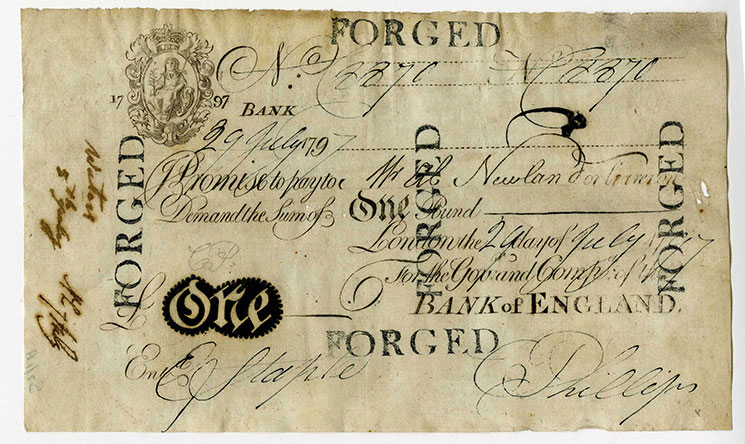 FORGED
No. 8870 No 8870
1797 BANK
29 July 1797
I Promise to pay to Mr Ab Newland or bearer
Demand the Sum of One Pound
London the 29 day of July 1797
For the Govr. and Compa. of the
£ One BANK of ENGLAND.
FORGED
FORGED
FORGED
FORGED
Entd E Staple C Phillips